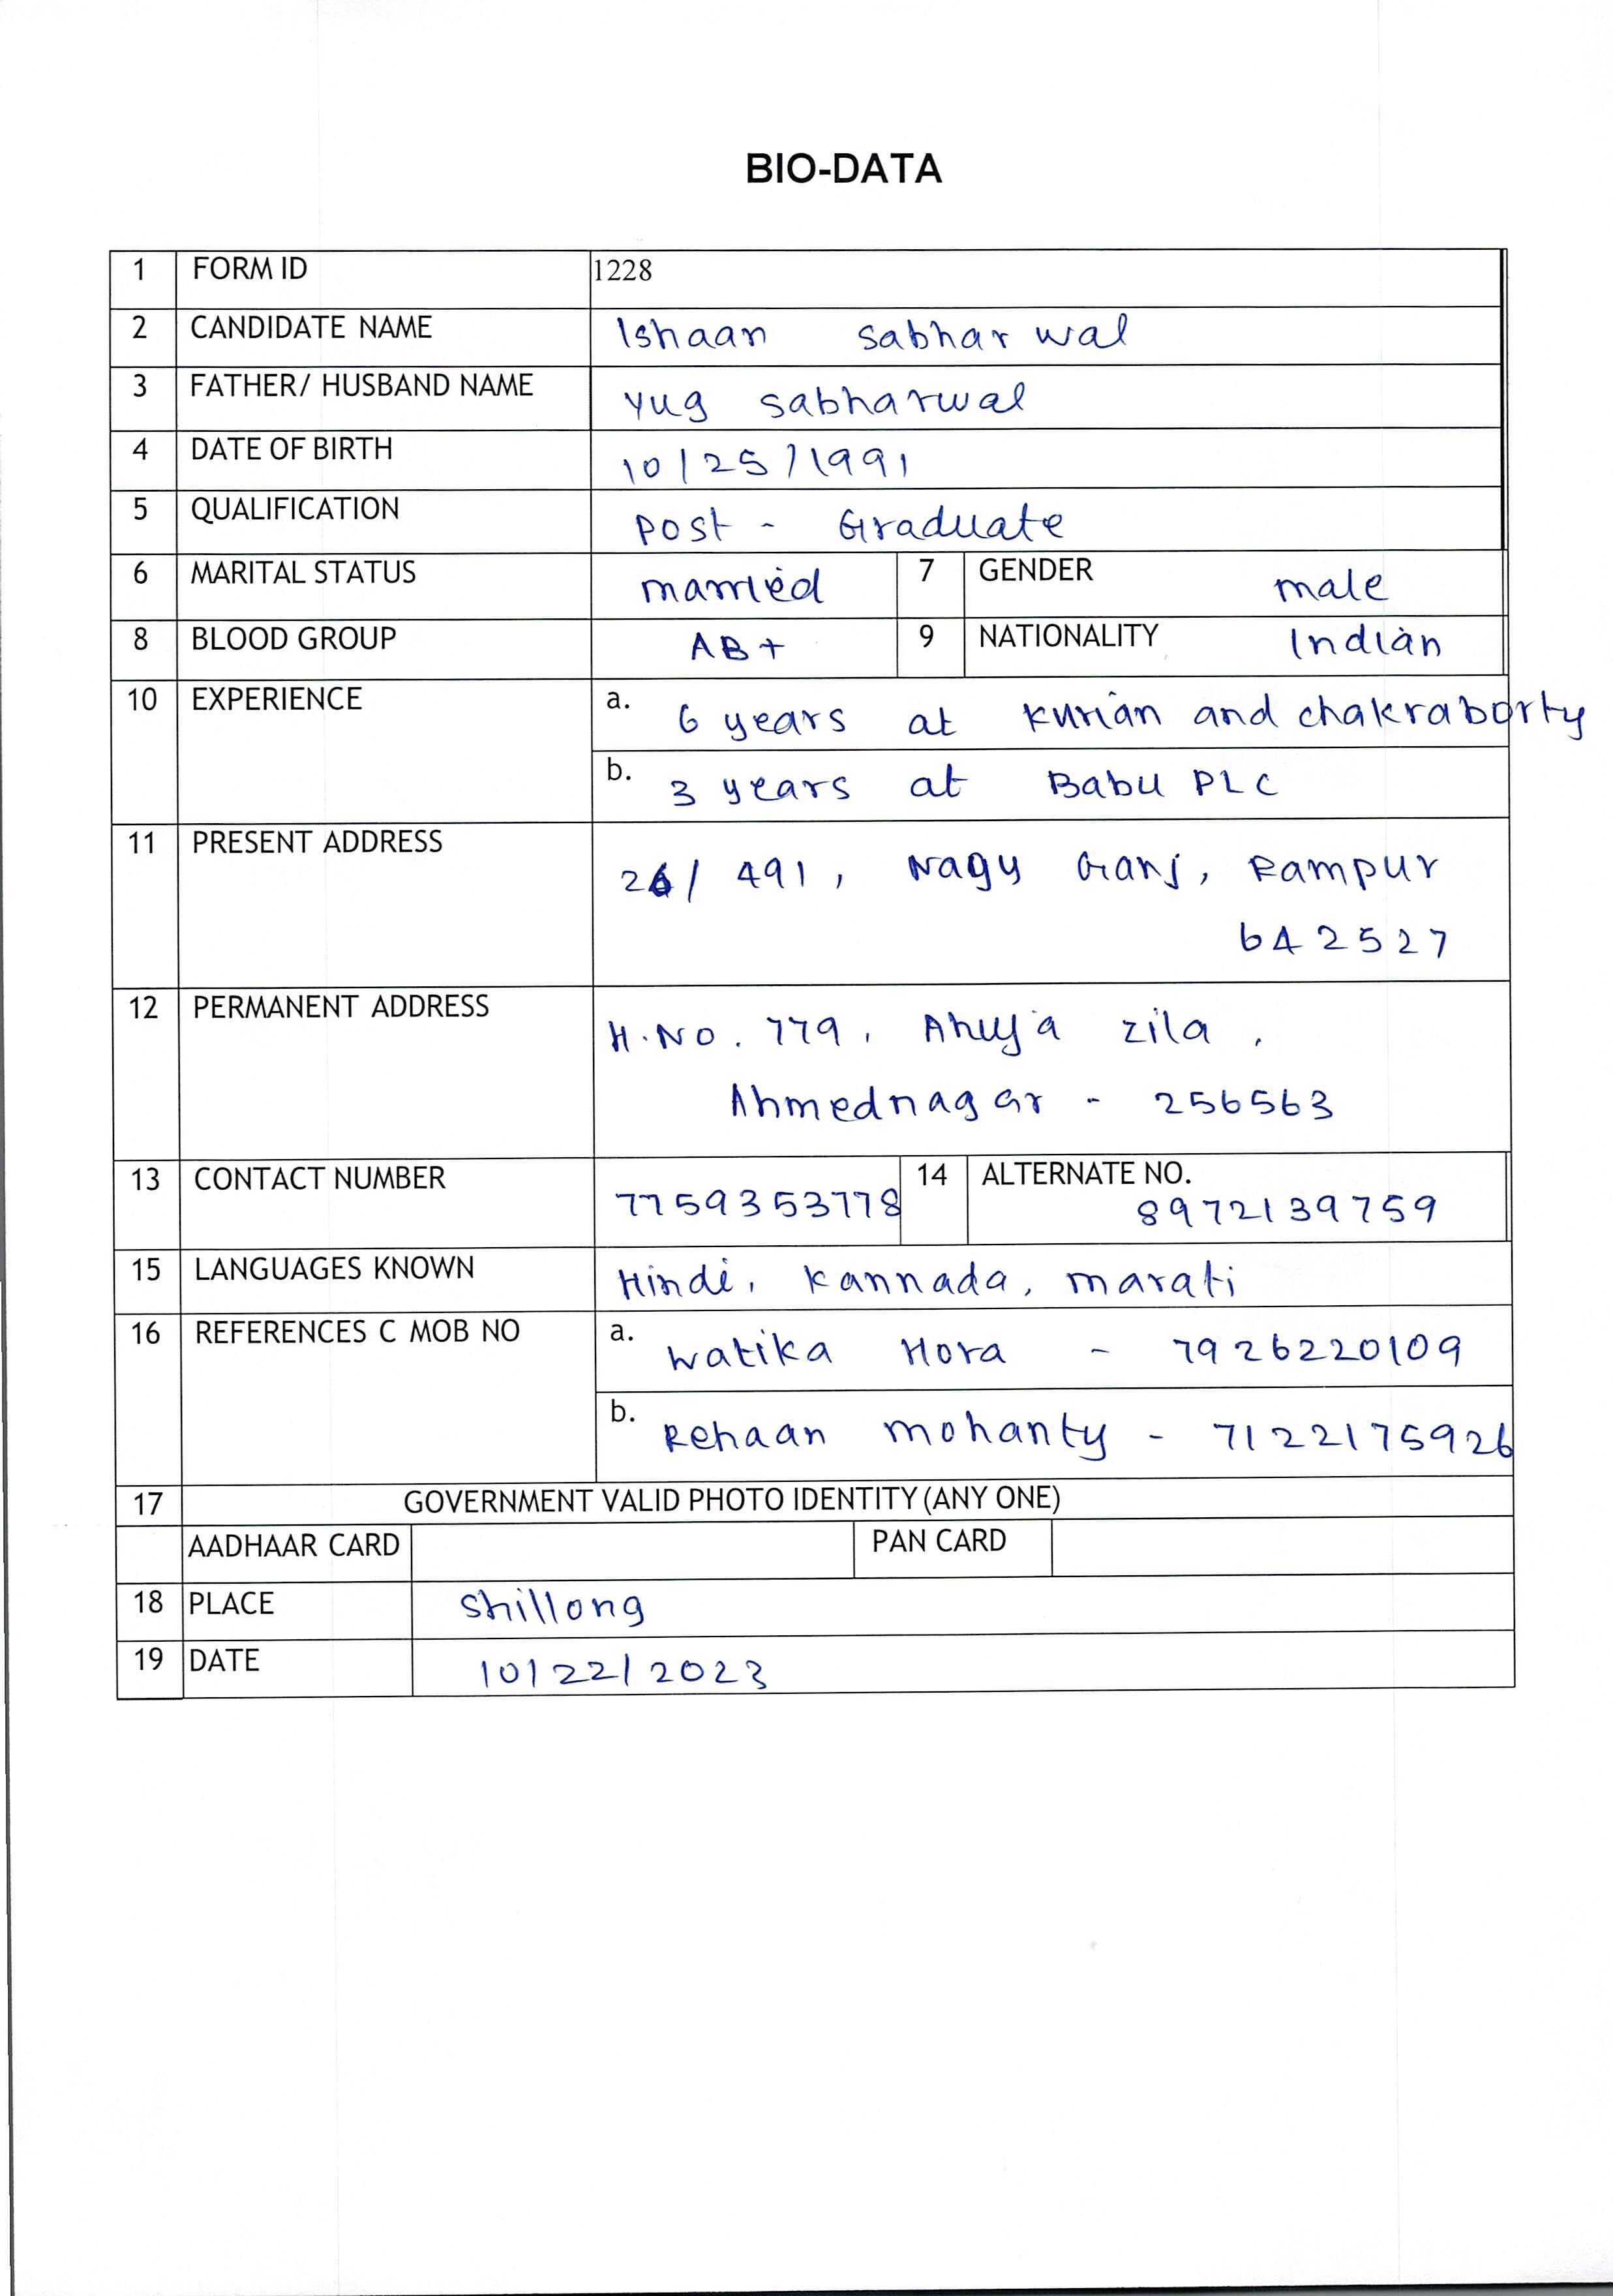 BIO-DATA
1 FORM ID 1228
2 CANDIDATE NAME Ishaan Sabharwal
3 FATHER/ HUSBAND NAME Yug Sabharwal
4 DATE OF BIRTH 10/25/1991
5 QUALIFICATION Post - Graduate
6 MARITAL STATUS married 7 GENDER male
8 BLOOD GROUP AB+ 9 NATIONALITY Indian
10 EXPERIENCE a. 6 years at Kurian and chakraborty
b. 3 years at Babu PLC
11 PRESENT ADDRESS
26/491, Nagy Ganj, Rampur
642527
12 PERMANENT ADDRESS
H.NO. 779, Ahuja zila,
Ahmednagar - 256563
13 CONTACT NUMBER 7759353778 14 ALTERNATE NO. 8972139759
15 LANGUAGES KNOWN Hindi, Kannada, marati
16 REFERENCES C MOB NO a. Watika Hora - 7926220109
b. Rehaan mohanty - 7122175926
17 GOVERNMENT VALID PHOTO IDENTITY (ANY ONE)
AADHAAR CARD PAN CARD
18 PLACE Shillong
19 DATE 10/22/2023